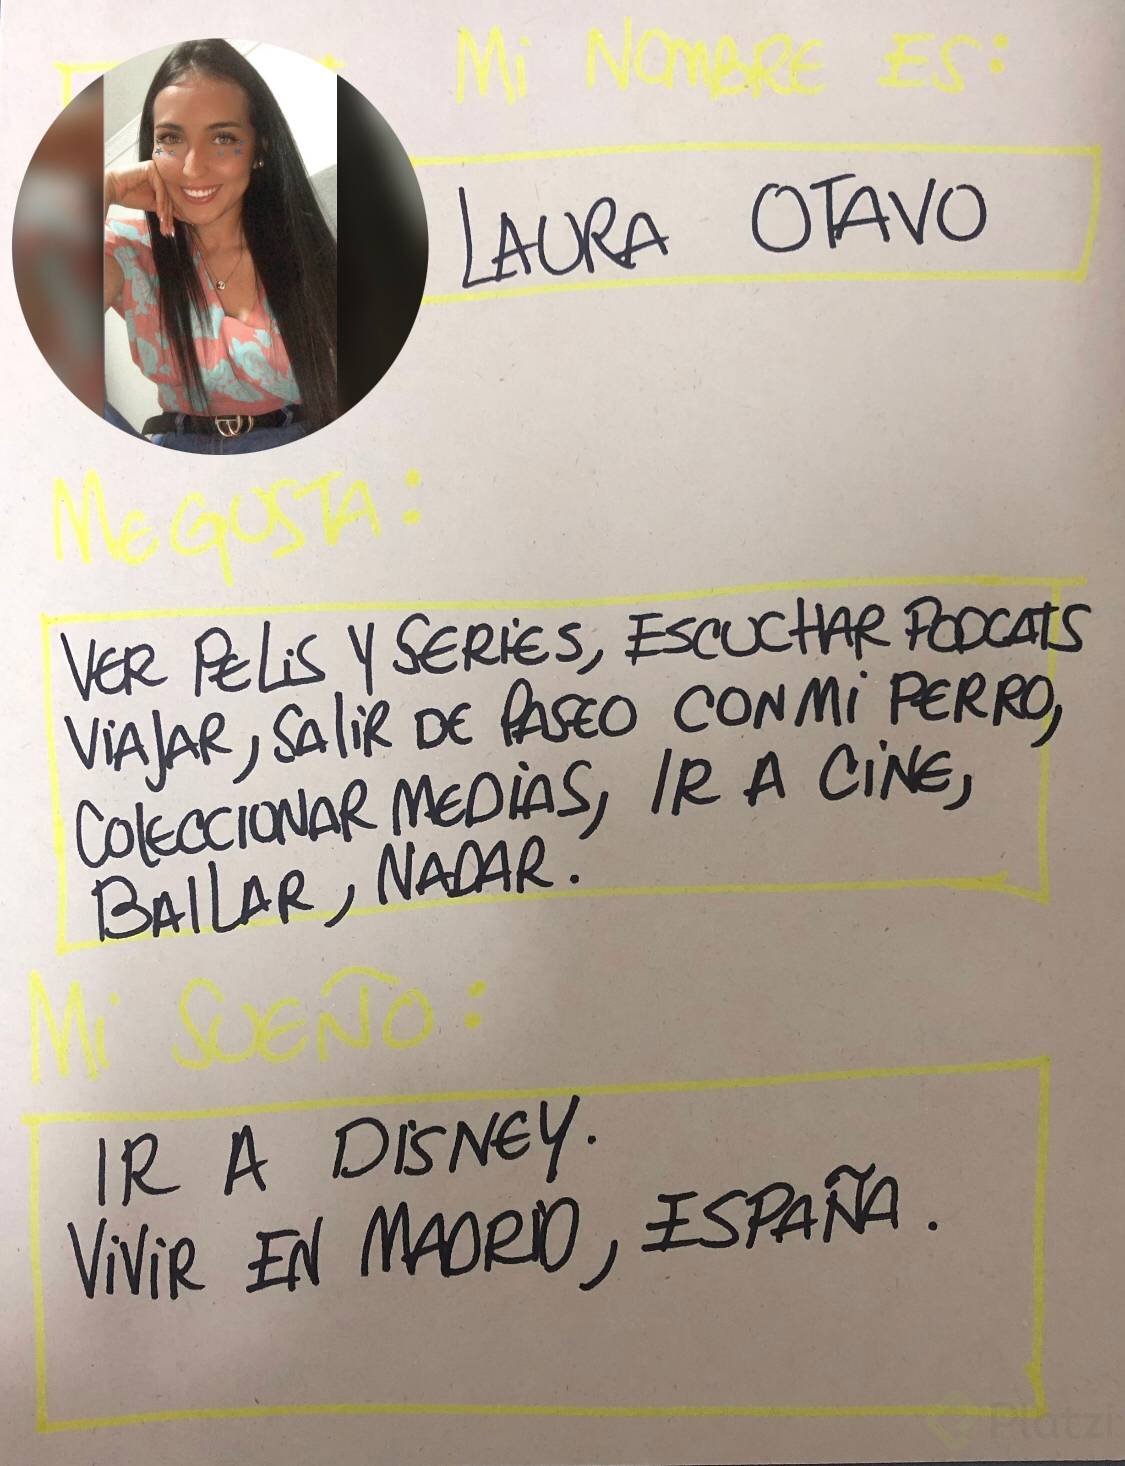 Mi NOMBRE ES:
LAURA OTAVO
ME GUSTA:
VER PELiS Y SERiES, ESCUCHAR PODCATS
ViAJAR, SAliR DE PASEO CON Mi PERRO,
COlECCIONAR MEDiAS, IR A CiNE,
BAILAR, NADAR.
Mi SUEÑO:
IR A DiSNEY.
ViViR EN MADRID, ESPAÑA.
Platzi